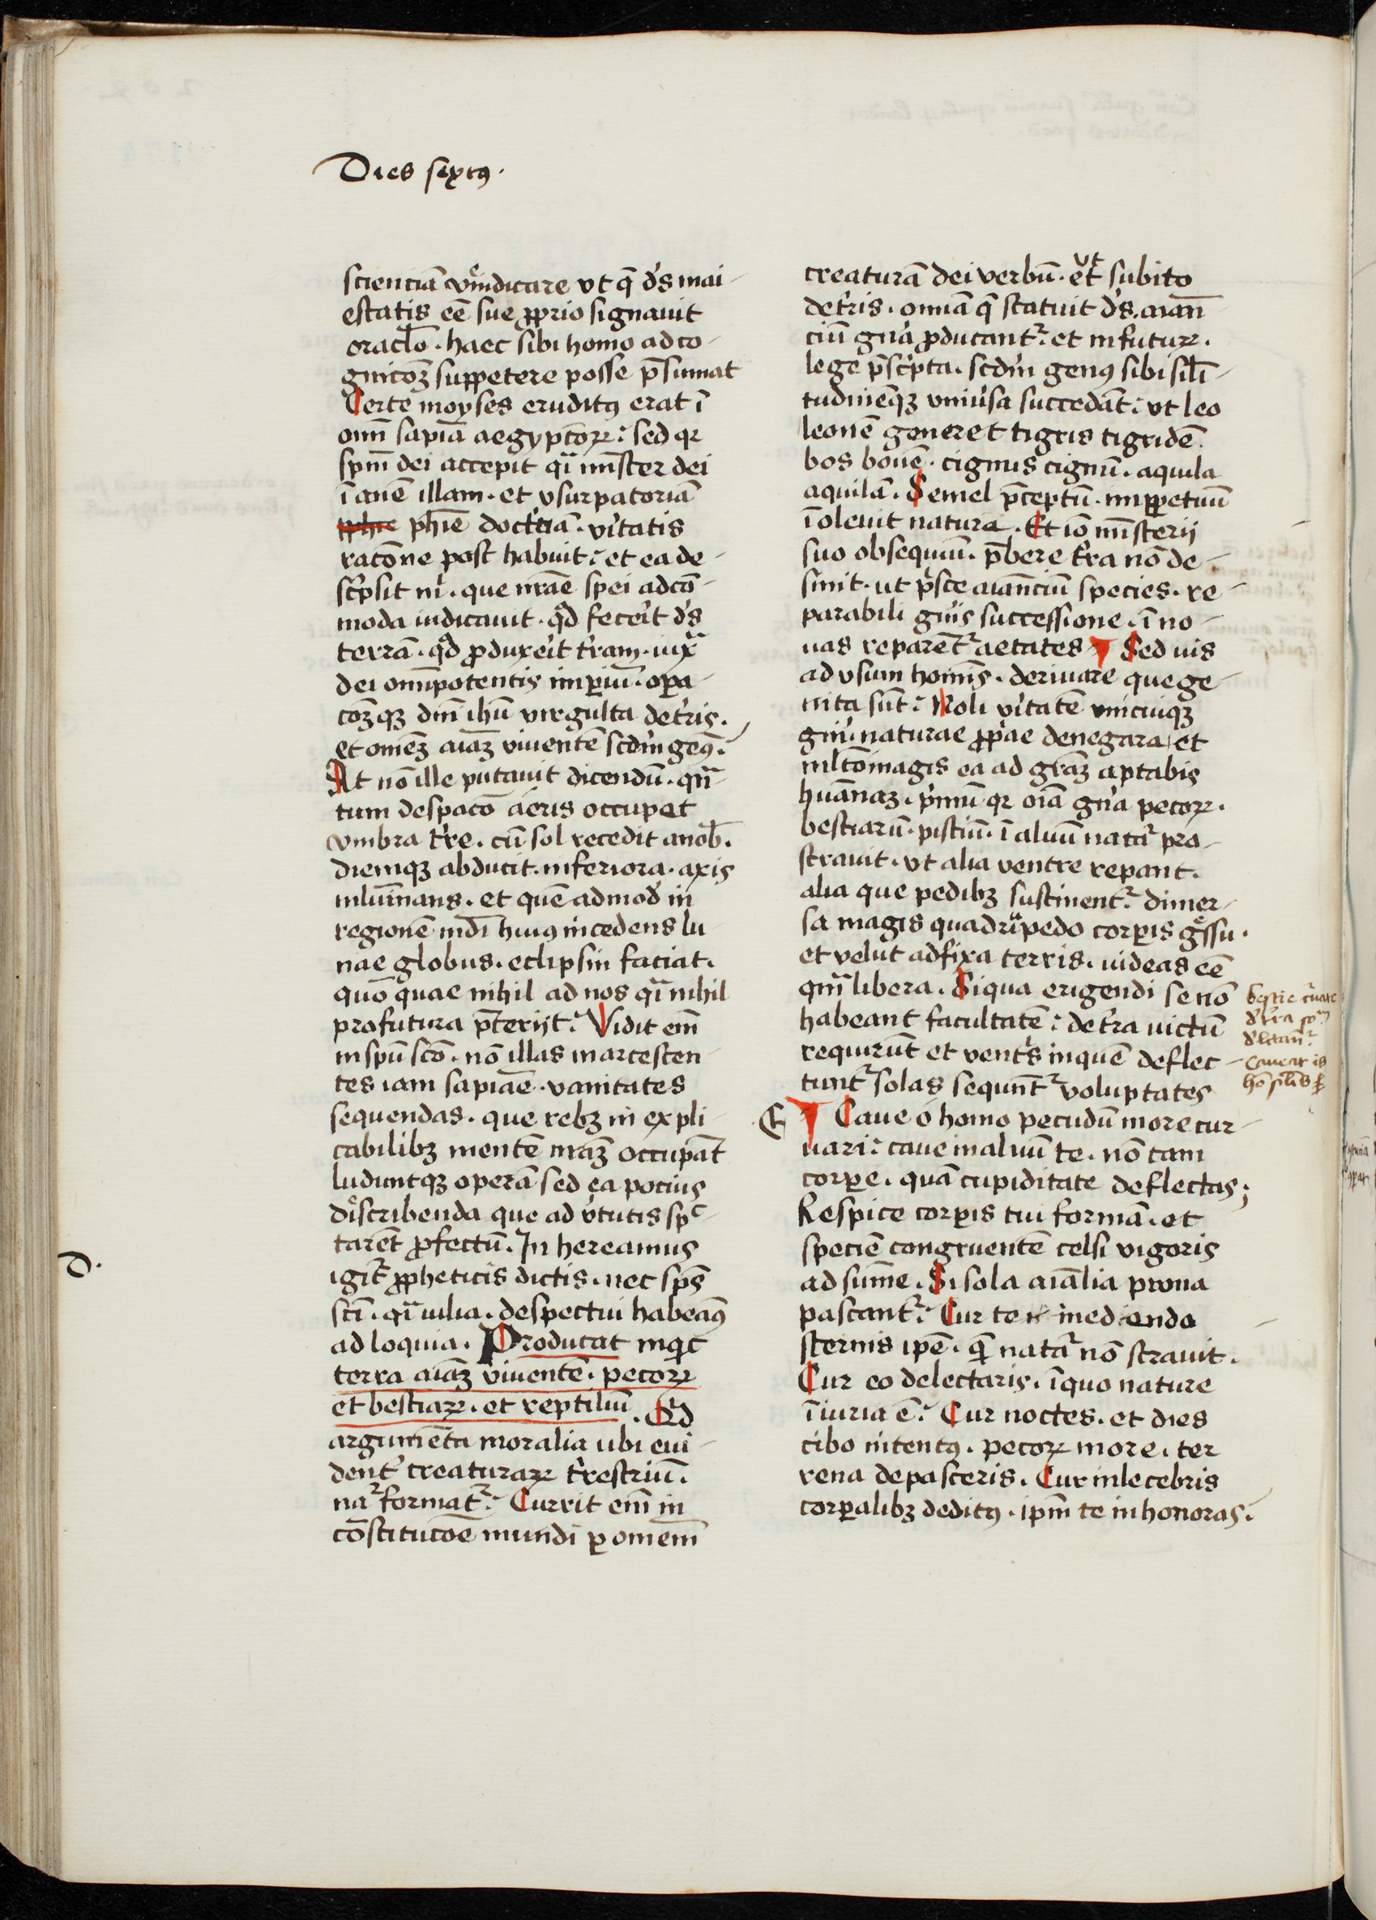 Dies sextꝰ.
scienciā vēndicare vt q̄ ds̄ mai-
estatis eē sue ꝓprio signauit
oraclo. haec sibi homo ad co-
gnicōꝫ suppetere posse p̄sumat
Certe moyses eruditꝰ erat ī
om̄ sapīa aegyptioꝝ: sed qꝛ
sp̄m dei accepit qͣi mīster dei
īanē illam. et vsurpatoriā
ph̄ie doctrīa. v̓itatis
racōne post habuit: et ea de-
sc̓psit n̄. que nr̄ae spei adcō-
moda iudicauit. qd̄ fecerit ds̄
terrā. qd̄ ꝓduxerit t̓ram. iuxͣ
dei om̄ipotentis imꝑiū. oꝑa-
cōꝫqꝫ dn̄i ihū virgulta de t̓ris.
et omēꝫ aīaꝫ viuentē scd̄m genꝰ:
At nō ille putauit dicendū. qͣn-
tum de spacō aeris occupet
vmbra t̓re. cū sol recedit a nob̄.
diemqꝫ abducit. inferiora. axis
inlumīans. et quē admod̄ in
regionē mdī huius incedens lu-
nae globus. eclipsin faciat.
quō quae nihil ad nos qͣi nihil
profutura p̄teriit: Vidit em̄
in spū scō. nō illas marcescen-
tes iam sapiāe. vanitates
sequendas. que rebꝫ in expli-
cabilibꝫ mentē nr̄aꝫ occupāt
luduntqꝫ operā sed ea potius
describenda que ad v̓tutis spc̄-
tarēt ꝓfectū. In hereamus
igit̓ ꝓpheticis dictis. nec sps̄
scī. qͣi uilia. despectui habeaꝰ
ad loquia. Producat inqͥt
terra aīaꝫ viuentē. pecoꝝ
et bestiaꝝ. et reptiliū. Qd
argumēta moralia ubi eui-
dent̓ creaturaꝝ t̓restriū.
naͬ formatͬ: Currit em̄ in
cōstitucōe mundi ꝑ omem̄
creaturā dei verbū. et̄ ut subito
de t̓ris. omīa q̄ statuit ds̄. aian-
ciū gn̓a ꝓducantͬ: et in futuꝝ.
lege p̄sc̓pta. scd̄m genꝰ sibi sil̄i-
tudinēqꝫ vniu̓sa succedāt: vt leo
leonē generet tigris tigridē.
bos bouē. cignus cignū. aquila
aquilā. Semel p̄ceptū. imꝑpetuū
īoleuit natura. Et iō mīsterij
suo obsequiū. p̄bere t̓ra nō de-
sinit. ut p̓sce aiānciū species. re-
parabili gn̓is successione. ī no-
uas reparētͬ aetates Sed uis
ad vsum homīs. deriuare que ge-
nita sūt: Noli v̓itatē vnicuiqꝫ
gn̓i. naturae ꝓpriae denegara, et
mltōmagis ea ad gr̄aꝫ aptabis
huānaꝫ. p̓mū qꝛ oīa gn̓a pecoꝝ.
bestiarū. pisciū. ī aluū natͬa pro-
strauit. vt alia ventre repant.
alia que pedibꝫ sustinentͬ: dimer-
sa magis quadrupedo corꝑis gͤssu.
et velut adfixa terris. uideas eē
qͣm libera. Siqua erigendi se nō
habeant facultatē: de t̓ra uictū
requirūt et vent̓s in quē deflec-
tuntͬ solas sequntͬ voluptates
Caue ó homo pecudū more cur-
uari: caue in aluū te. nō tam
corꝑe. quā cupiditate deflectas;
Respice corꝑis tui formā. et
speciē congruentē celsi vigoris
ad sūme. Si sola aīalia prona
pascantͬ: Cur te in ediendo
sternis ipē. qͣ natͬa nō strauit.
Cur eo delectaris. īquo nature
īiuria ē: Cur noctes. et dies
cibo intentꝰ. pecoꝝ more. ter-
rena depasceris. Cur inlecebris
corꝑalibꝫ deditꝰ. ipm̄ te in honoras.
D.
E